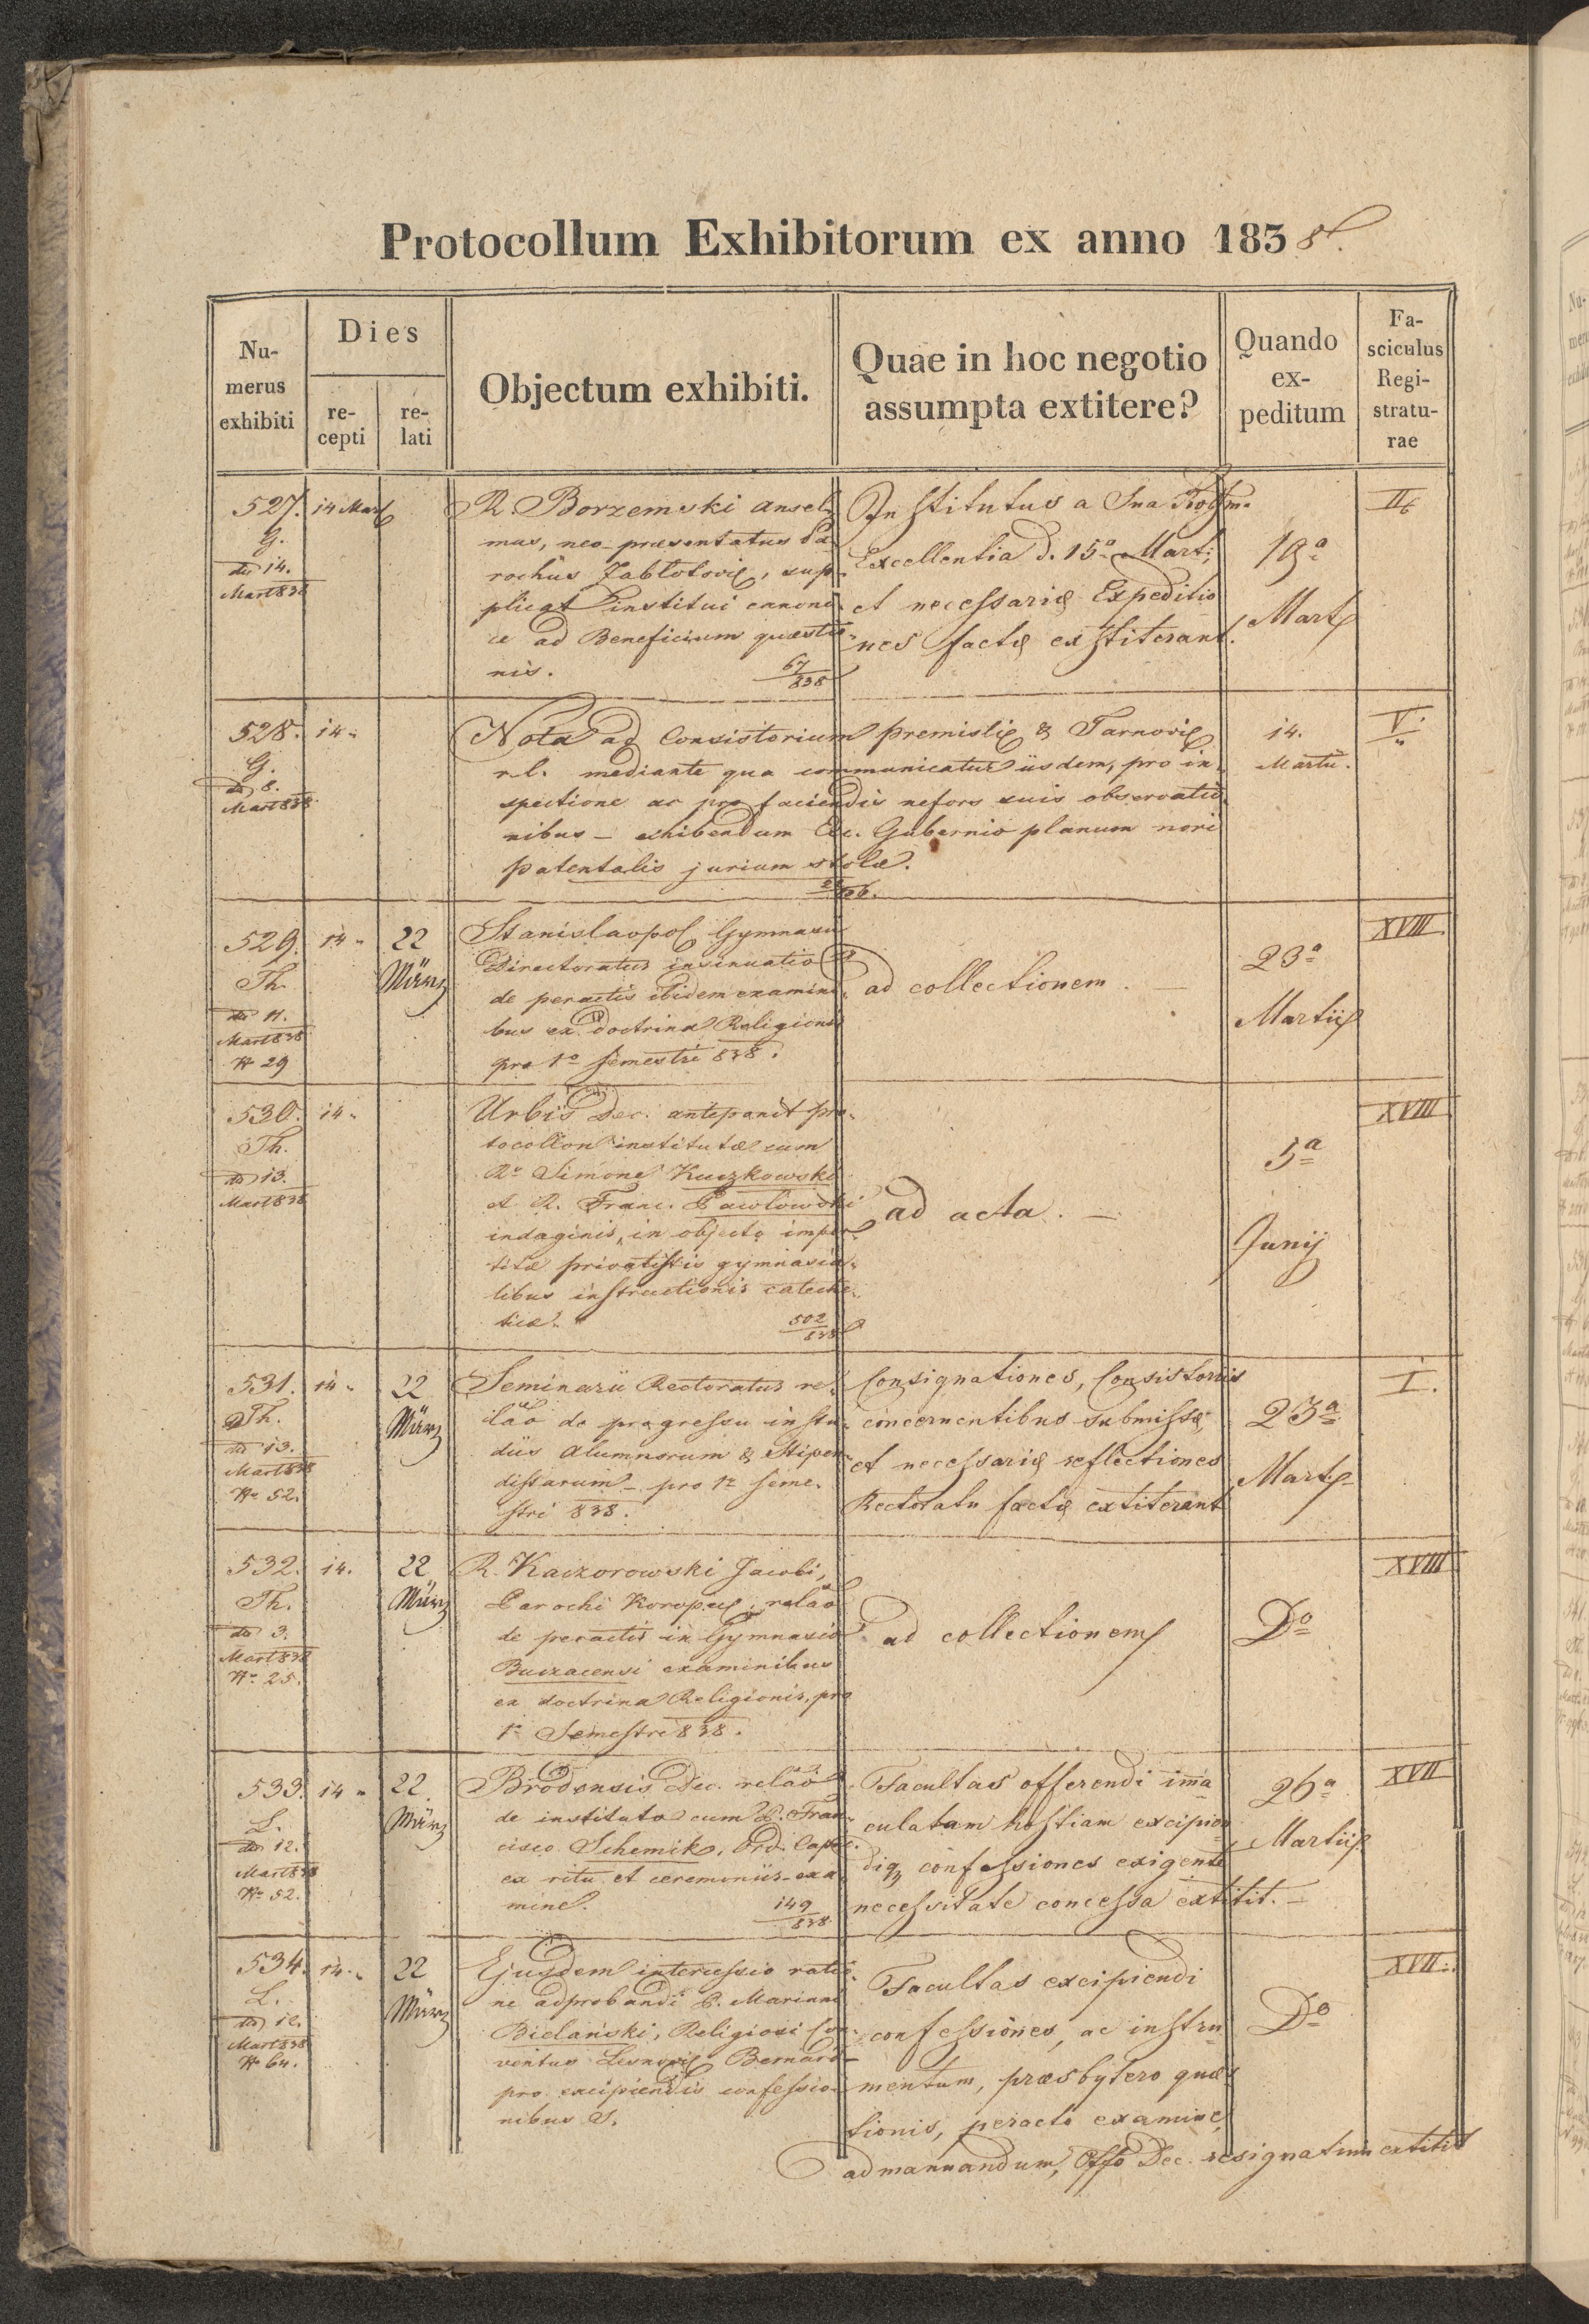 Protocollum Exhibitorum ex anno 1838.
Numerus exhibiti
Dies
recepti
relati
Objectum exhibiti.
Quae in hoc negotio assumpta extitere?
Quando expeditum
Fasciculus Registraturae
527.
G.
do 14.
Mart 838
14 Mart
R. Borzemski Ansel-
mus, neo-praesentatus Pa-
rochus Jabłotovię, sup-
plicat institui canoni-
ce ad Beneficium quaestio-
nis.
67/838
Institutus a Sua
Excellentia d. 15a Marti,
et necessarię Expeditio
nes factę exstiterant.
19a
Mart
II
528.
G.
do 8.
Mart 838
14 "
Nota ad Consistorium premislię & Tarnovię
r. l. mediante qua communicatur iisdem, pro in-
spectione ac pro faciendis nefors suis observatio-
nibus – exhibendum Exc. Gubernio planum novi
patentalis jurium stolae.
14.
Martii.
V.
529.
Th.
do 11.
Mart 838
No 29
14 "
22
März
Stanislaopol Gymnasii
Directoratus insinuatio
de peractis ibidem examini-
bus ex doctrina Religionis
pro 1o semestri 838.
ad collectionem. –
23a
Martii
XVIII
530.
Th.
do 13.
Mart 838
14 "
Urbis Dec. anteponit pro-
tocollon institutae cum
Ro Simone Kuczkowski
et R. Franc. Pawłowski
indaginis, in objecto imper-
titae privatistis gymnasia-
libus instructionis cateche-
ticae.
502/838
ad acta. –
5a
Junij
XVIII
531.
Th.
do 13.
Mart 838
No 52.
14 "
22
März
Seminarii Rectoratus re-
lāo de progressu in stu-
diis Alumnorum & Stipen-
distarum – pro 1o seme-
stri 838.
Consignationes, Consistoriis
concernentibus submissę,
et necessarię reflectiones
Rectoratu factę extiterant
23a
Mart
I.
532.
Th.
do 3.
Mart 838
No 25.
14.
22
März
R. Kaczorowski Jacobi,
Parochi Koropeę, relāo
de peractis in Gymnasio
Buczacensi examinibus
ex doctrina Religionis, pro
1o Semestri 838.
ad collectionem
Do
XVIII
533.
L.
do 12.
Mart 838
No 52.
14 "
22.
März
Brodensis Dec. relāo
de instituto cum P. Fran-
cisco Schemik, Ord. Capuc.
ex ritu et ceremoniis exa-
mine.
149/838
Facultas offerendi im̄a
culatam hostiam excipien
diq, confessiones exigente
necessitate concessa extitit. –
26a
Martii
XVII
534.
L.
do 12.
Mart 838
No 64.
14 "
22
März
Ejusdem intercessio ratio-
ne adprobandi P. Mariani
Bielański, Religiosi Con-
ventus Bernard-
pro excipiendis confessio-
nibus S.
Facultas excipiendi
confessiones, ac instru-
mentum, praesbytero quaes-
tionis, peracto examine,
admanuandum, Offo Dec. resignatum extitit
Do
XVII.